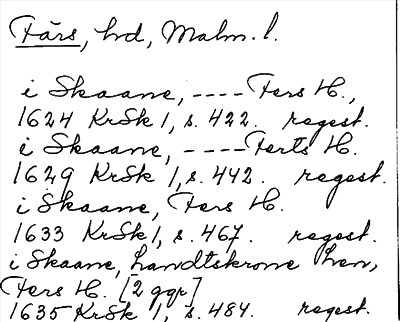 Färs, hd, Malm. l.
i Skaane, ---- Fers H.,
1624 KrSk 1, s. 422. regest.
i Skaane, ---- Ferts H.
1629 KrSk 1, s. 442. regest.
i Skaane, Fers H.
1633 KrSk 1, s. 467. regest.
i Skaane, Landtskrone Len,
Fers H. [2 ggr]
1635 KrSk 1, s. 484. regest.